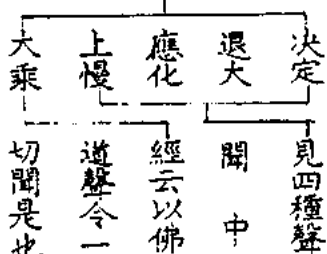 决定
退大
應化
上慢
大乘
見四種聲
聞中
經云以佛
道聲令一
切聞是也